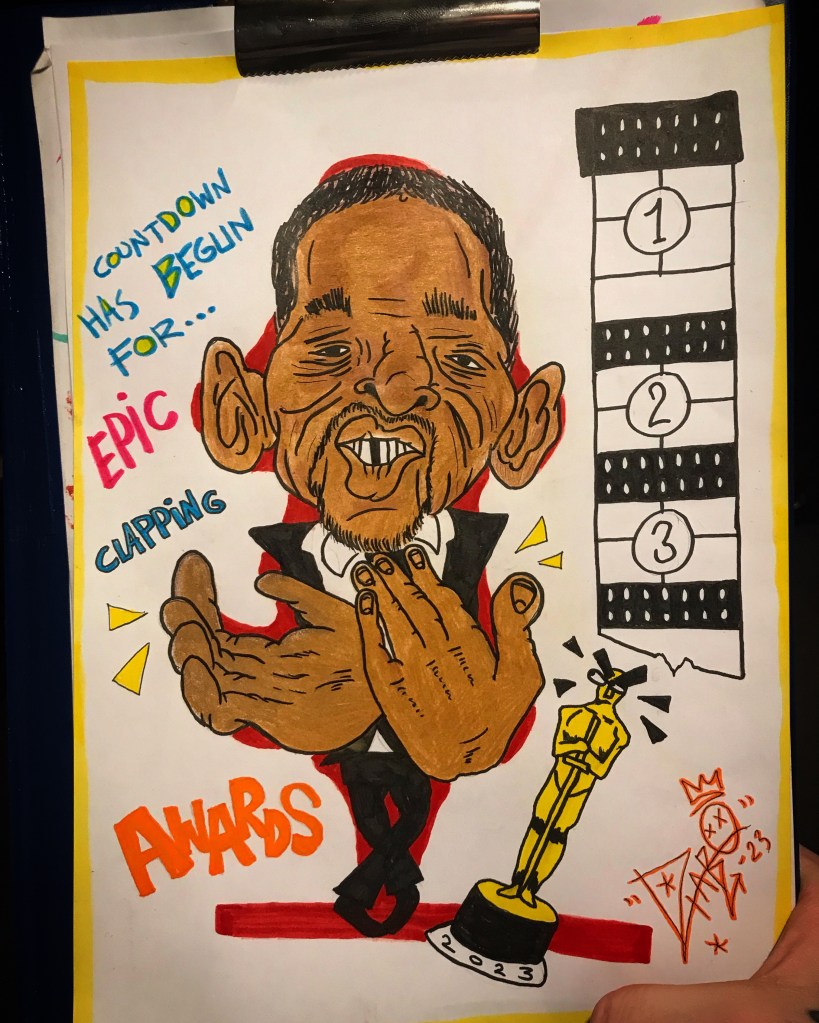 COUNTDOWN
HAS BEGUN
FOR...
EPIC
CLAPPING
AWARDS
1
2
3
2023
-23